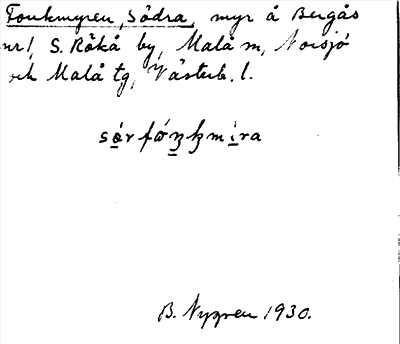 Fonkmyren, Södra, myr å Bergås
nr 1, S. Röká by, Malå m, Norsjö
och Malå tg, Västerb. l.
B. Nygren 1930.